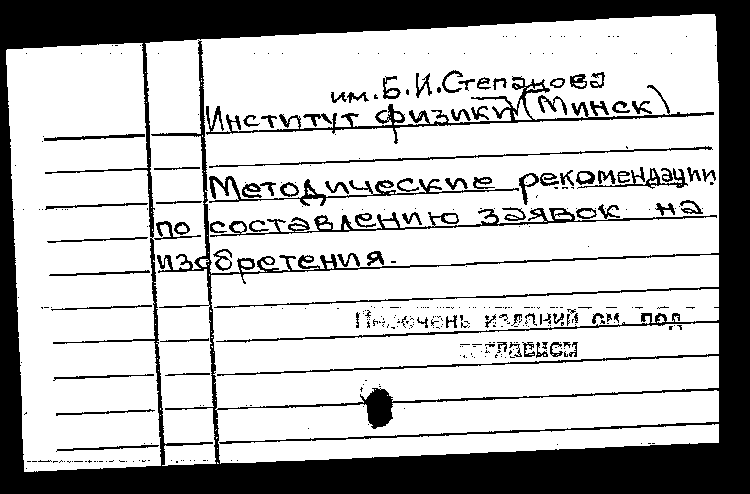 им. Б. И. Степанова
Институт физики (Минск).
Методические рекомендации
по составлению заявок на
изобретения.
Перечень изданий см. под
заглавием